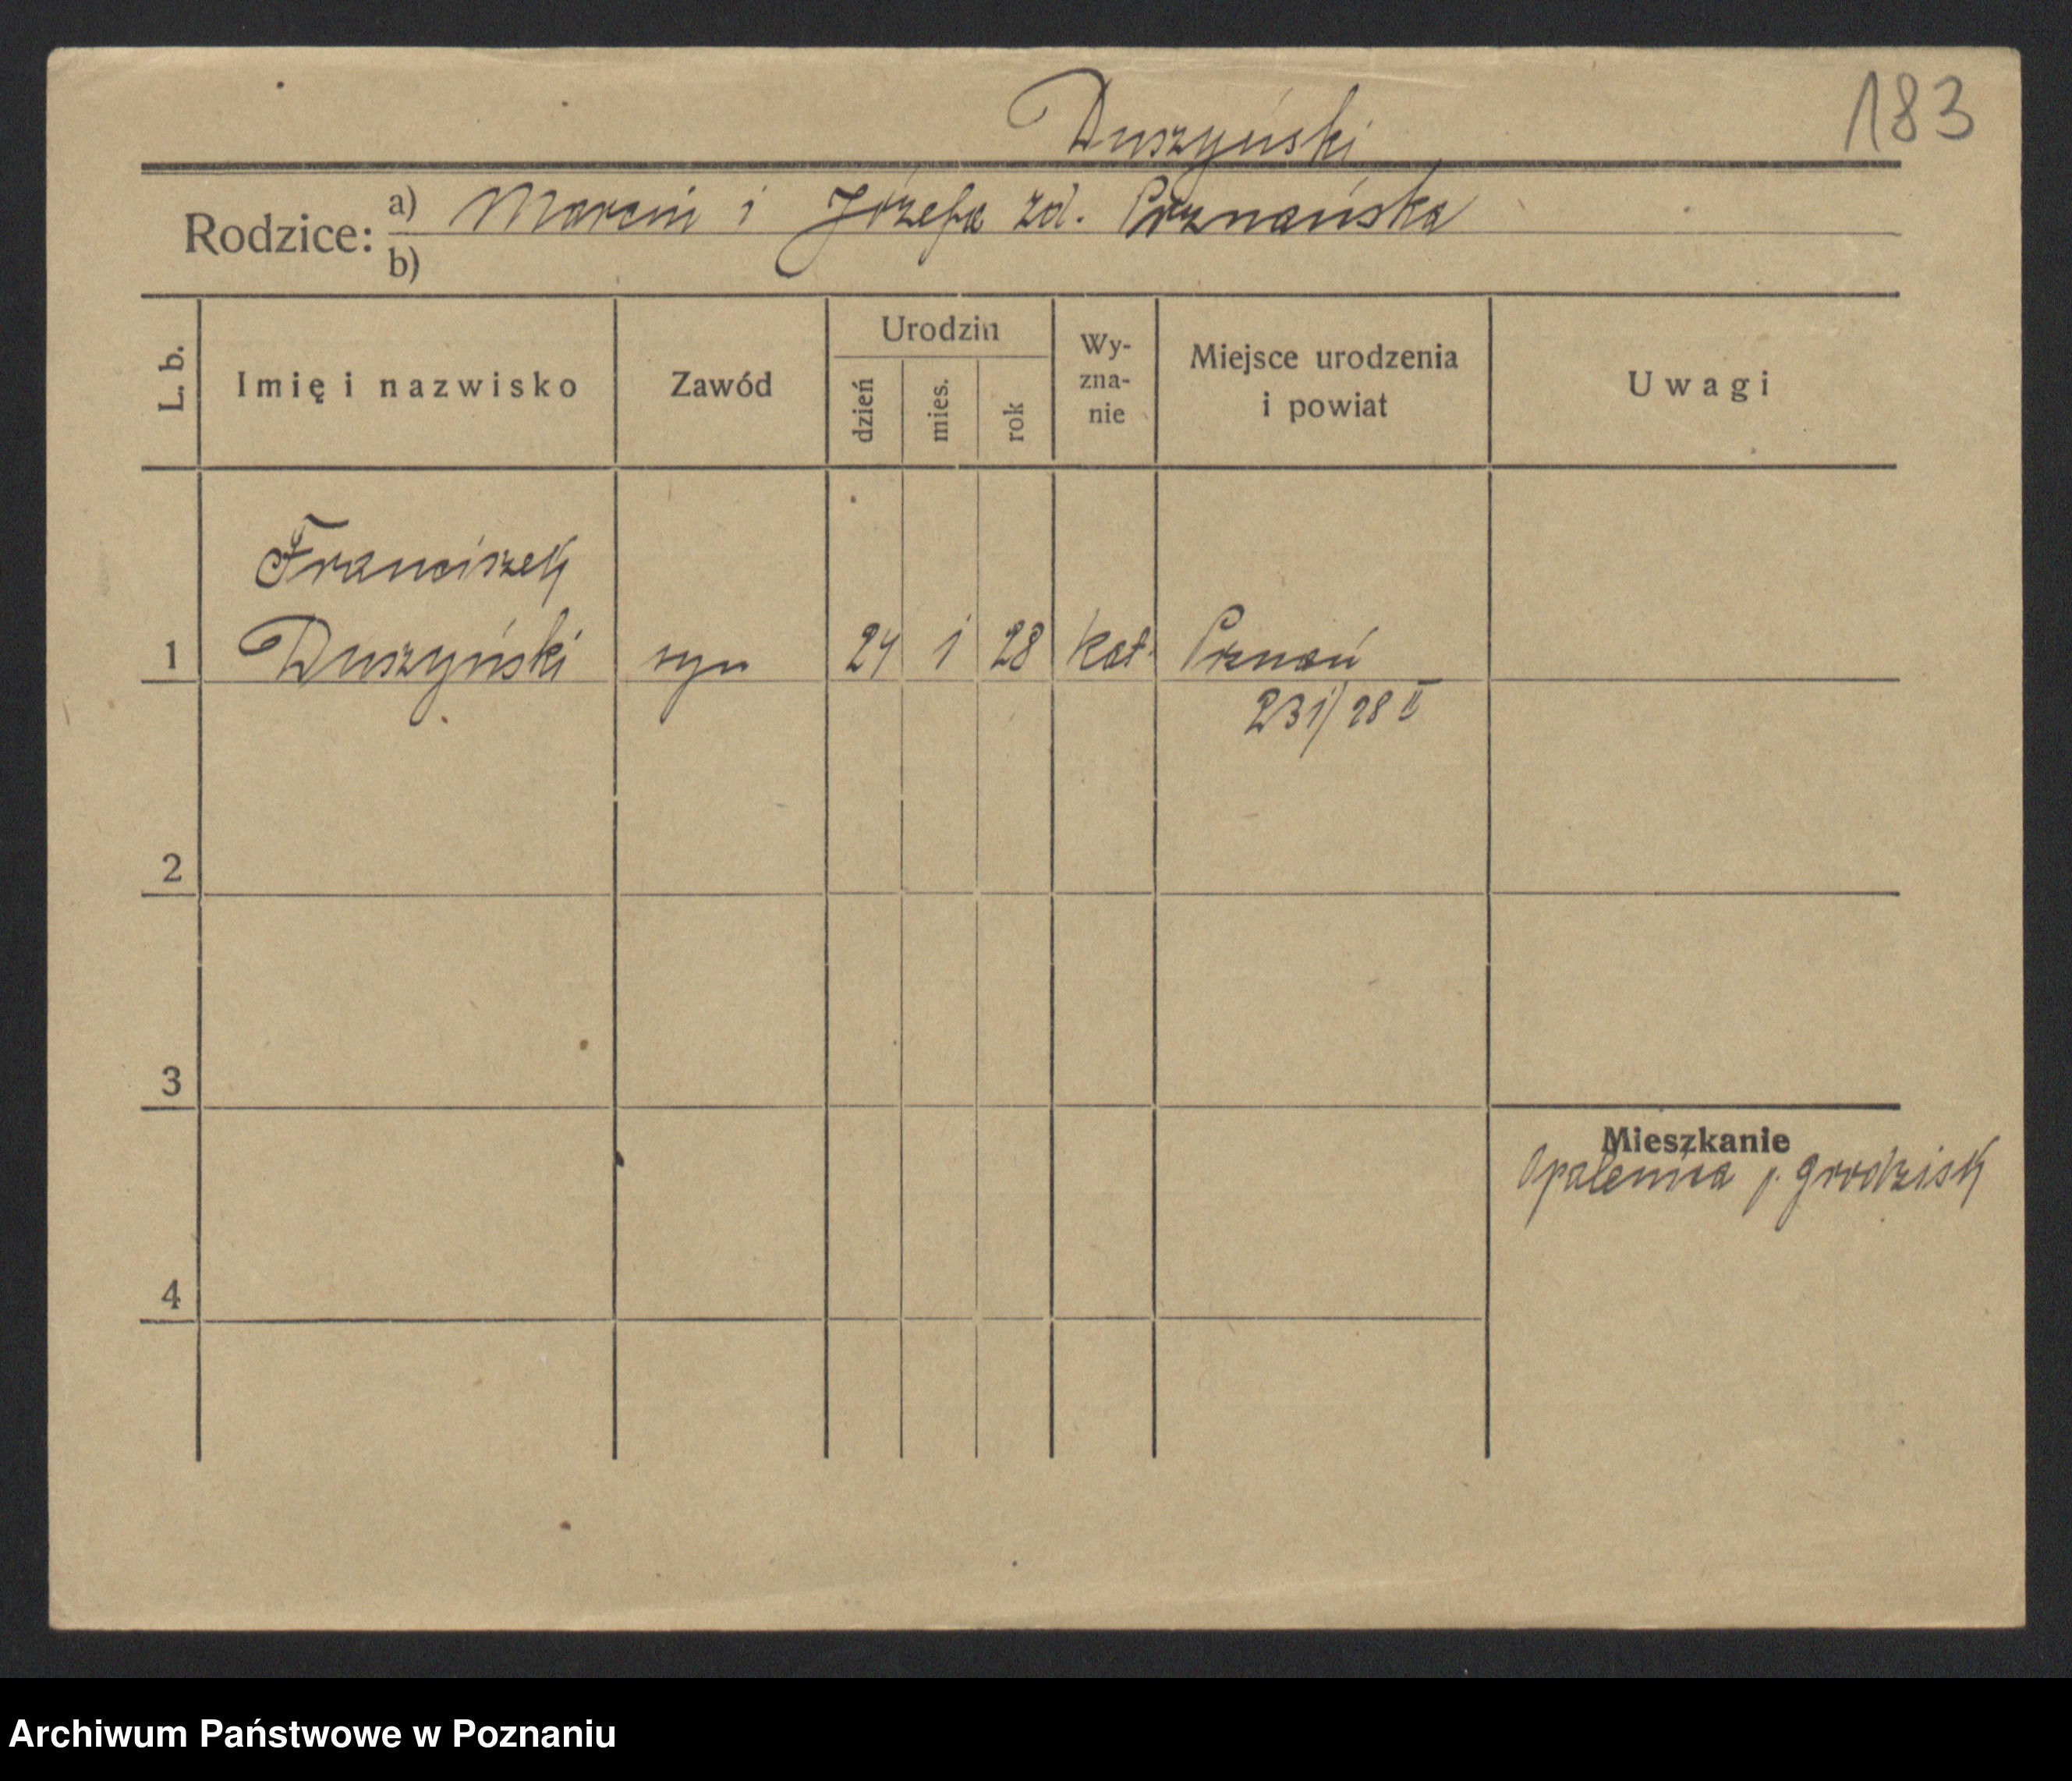 183
Duszyński
Rodzice: a) Marcin i Józefa zd. Poznańska
b)
L. b. Imię i nazwisko Zawód Urodzin dzień mies. rok Wy-zna-nie Miejsce urodzenia i powiat Uwagi
Franciszek
1 Duszyński syn 24 1 28 kat. Poznań
231/28 II
2
3
Mieszkanie
Opalenica p. Grodzisk
4
Archiwum Państwowe w Poznaniu